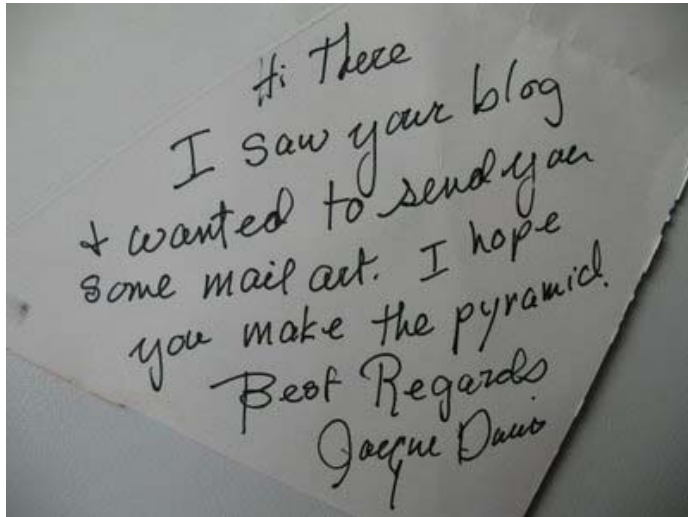 Hi There
I saw your blog
& wanted to send you
some mail art. I hope
you make the pyramid.
Best Regards
Jacque Davis